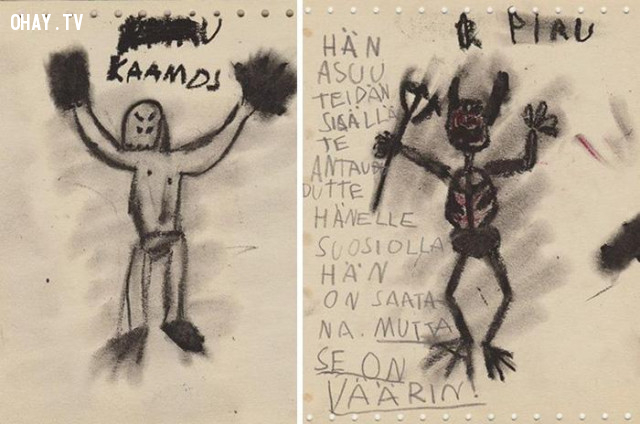 OHAY.TV
KAAMOS
PIRU
HÄN
ASUU
TEIDÄN
SISÄLLÄ
TE
ANTAU
DUTTE
HÄNELLE
SUOSIOLLA
HÄN
ON SAATA
NA. MUTTA
SE ON
VÄÄRIN!